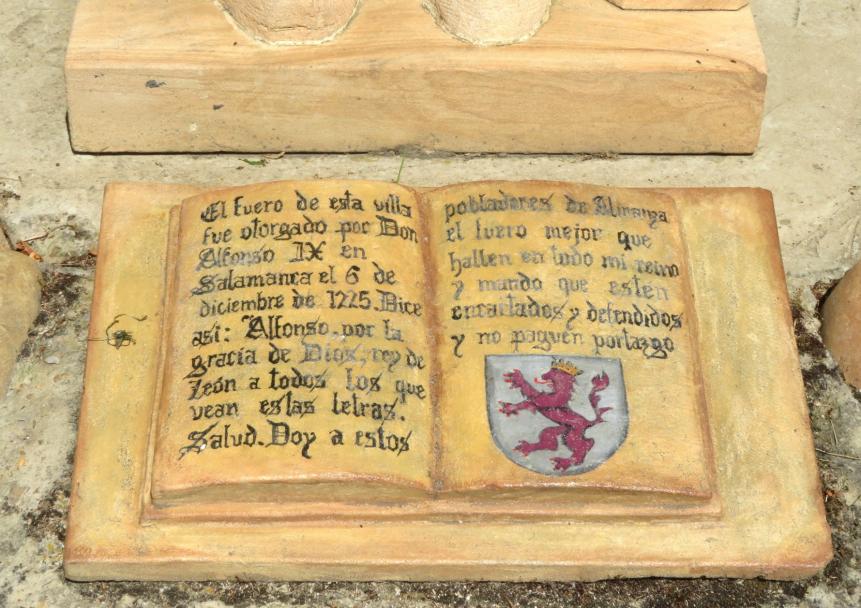 El fuero de esta villa
fue otorgado por Don
Alfonso IX en
Salamanca el 6 de
diciembre de 1225. Dice
asi: "Alfonso, por la
gracia de Dios, rey de
León a todos los que
vean estas letras.
Salud. Doy a estos
pobladores de
el fuero mejor que
hallen en todo mi reino
y mando que estén
encartados y defendidos
y no paguen portazgo